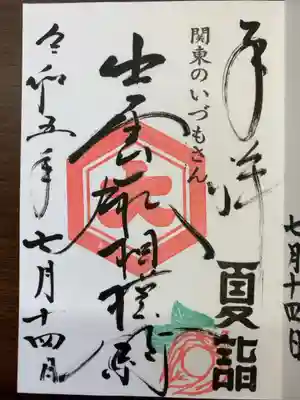 七月十四日
奉拝
夏詣
関東のいづもさん
出雲 相模分祠
令和五年七月十四日